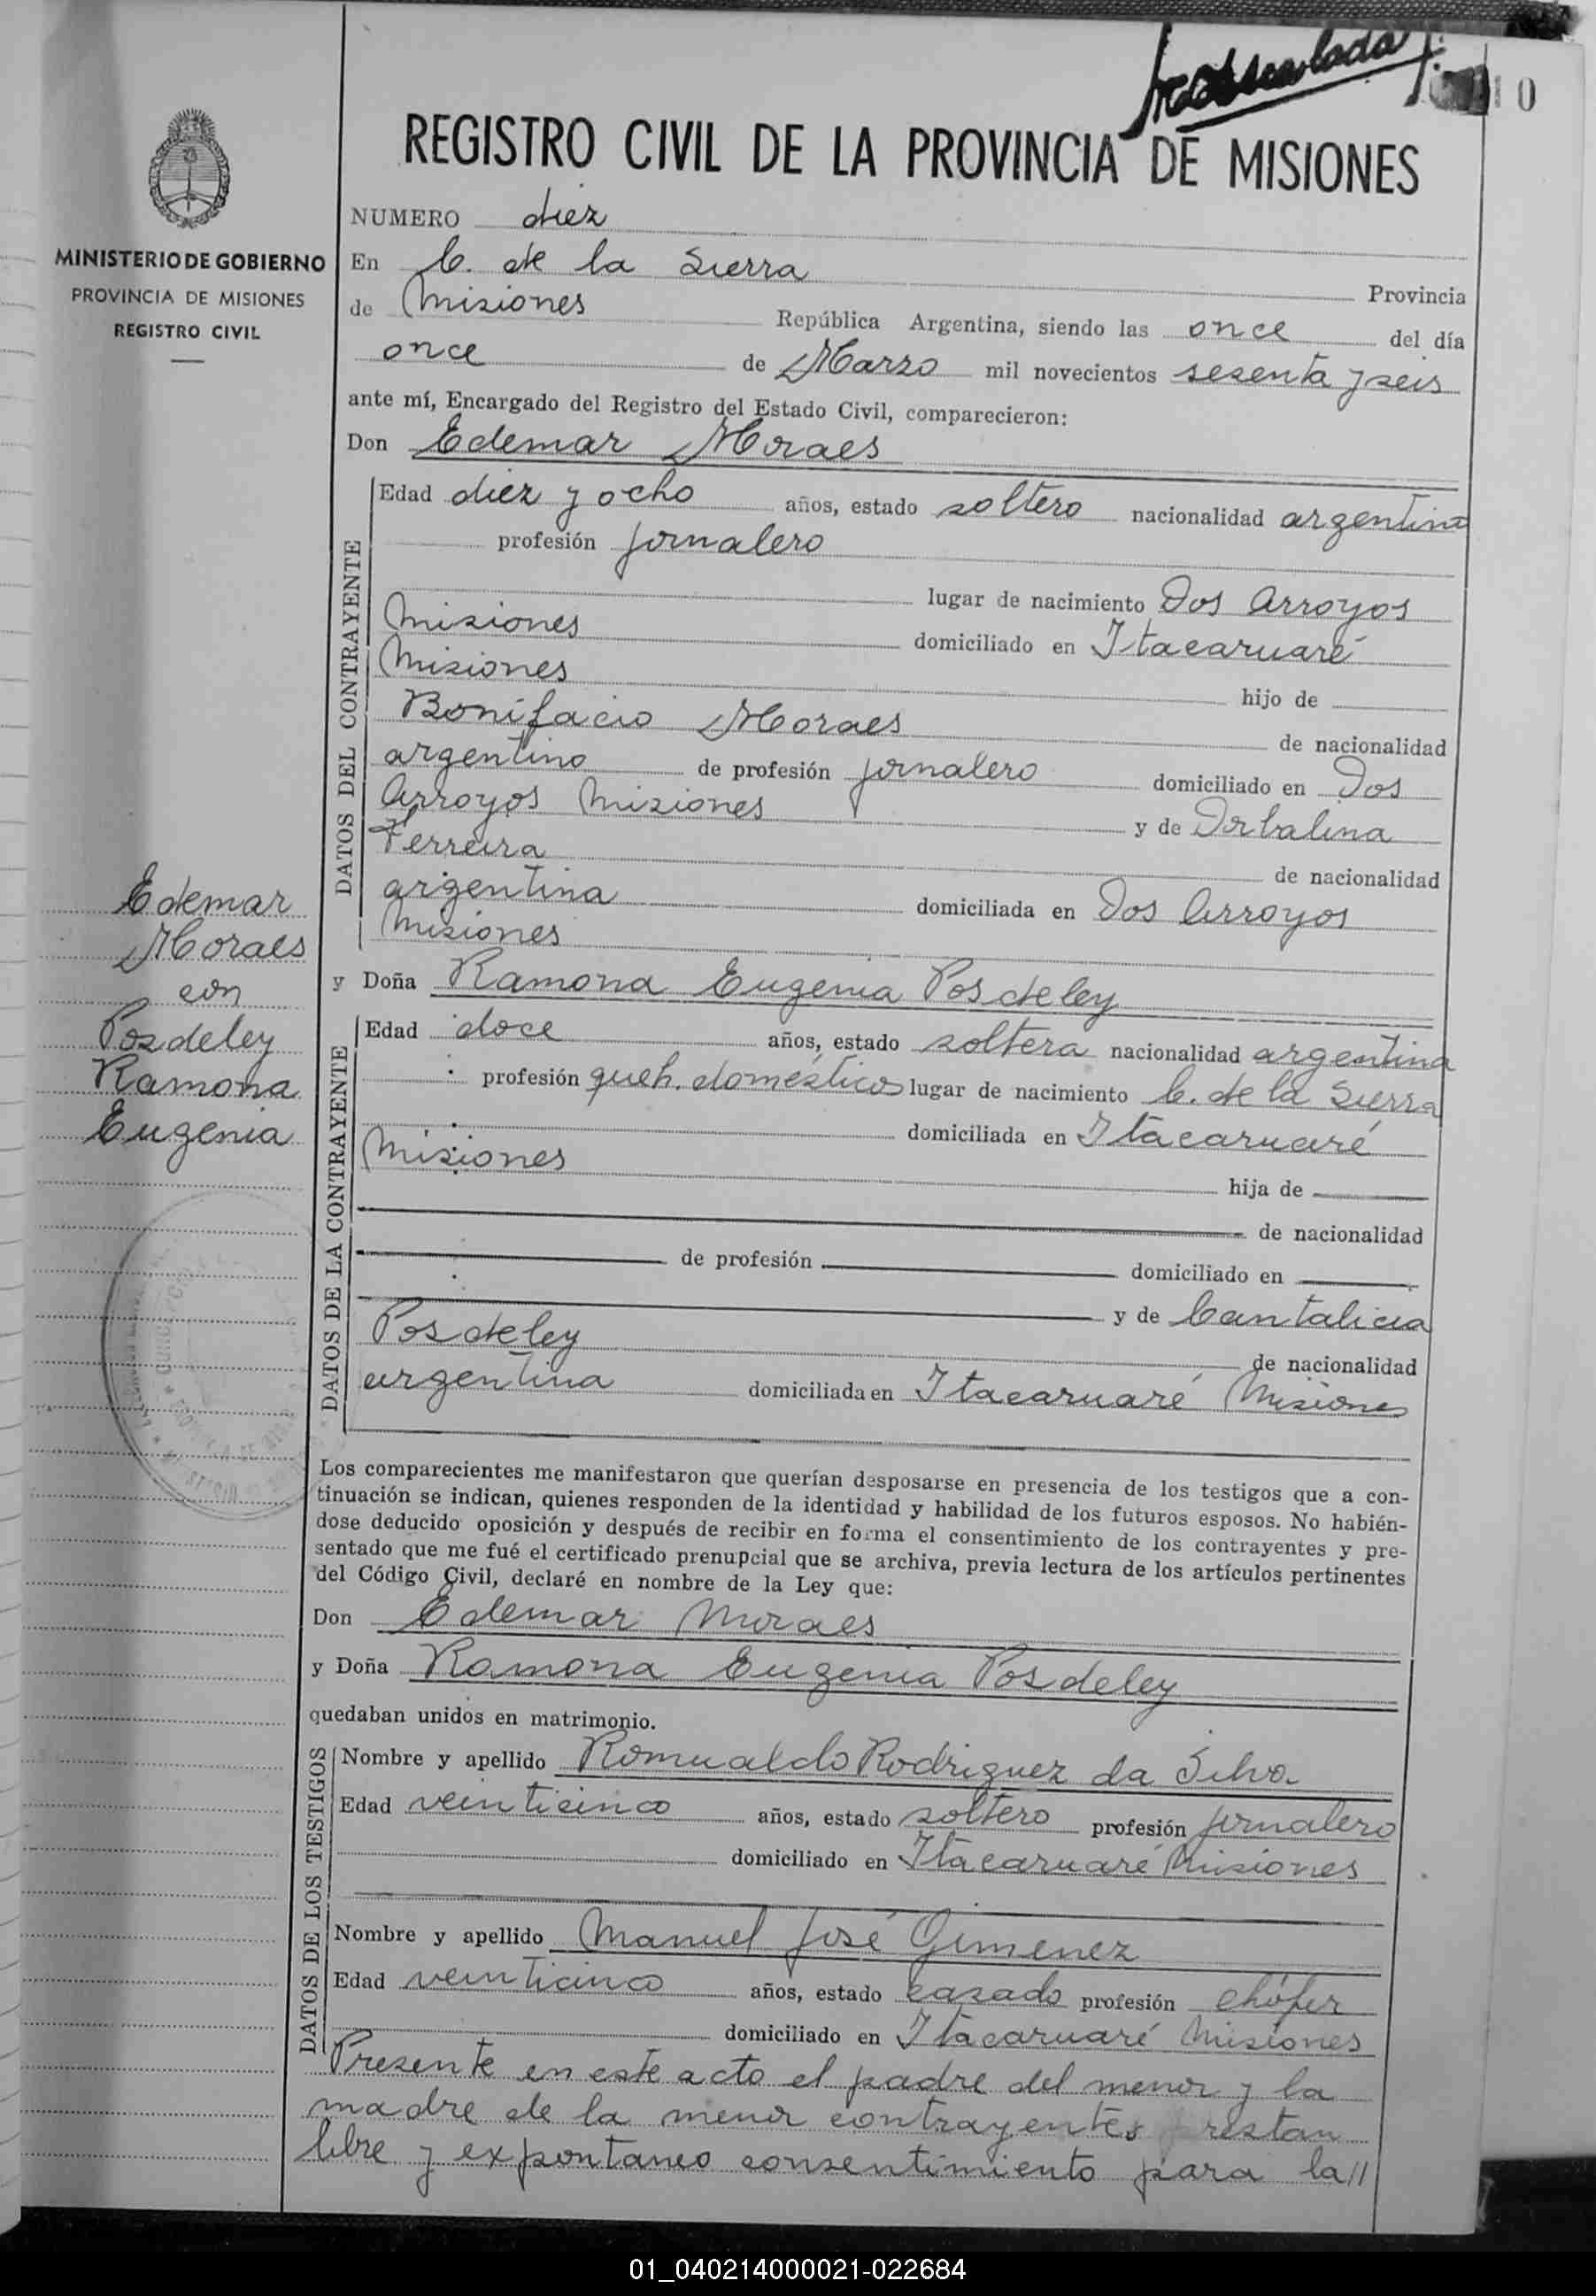 10
REGISTRO CIVIL DE LA PROVINCIA DE MISIONES
MINISTERIO DE GOBIERNO
PROVINCIA DE MISIONES
REGISTRO CIVIL
NUMERO diez
En C. de la Sierra Provincia
de Misiones República Argentina, siendo las once del día
once de Marzo mil novecientos sesenta y seis
ante mí, Encargado del Registro del Estado Civil, comparecieron:
Don Edemar Moraes
DATOS DEL CONTRAYENTE
Edad diez y ocho años, estado soltero nacionalidad argentino
profesión jornalero
lugar de nacimiento Dos Arroyos
Misiones domiciliado en Itacaruaré
Misiones hijo de
Bonifacio Moraes de nacionalidad
argentino de profesión jornalero domiciliado en Dos
Arroyos Misiones y de Orbalina
Ferreira de nacionalidad
argentina domiciliada en Dos Arroyos
Misiones
Edemar
Moraes
con
Posdeley
Ramona
Eugenia
y Doña Ramona Eugenia Posdeley
DATOS DE LA CONTRAYENTE
Edad doce años, estado soltera nacionalidad argentina
profesión queh. domésticos lugar de nacimiento C. de la Sierra
domiciliada en Itacaruaré
Misiones hija de
de nacionalidad
de profesión domiciliado en
y de Cantalicia
Posdeley de nacionalidad
argentina domiciliada en Itacaruaré Misiones
Los comparecientes me manifestaron que querían desposarse en presencia de los testigos que a con-
tinuación se indican, quienes responden de la identidad y habilidad de los futuros esposos. No habién-
dose deducido oposición y después de recibir en forma el consentimiento de los contrayentes y pre-
sentado que me fué el certificado prenupcial que se archiva, previa lectura de los artículos pertinentes
del Código Civil, declaré en nombre de la Ley que:
Don Edemar Moraes
y Doña Ramona Eugenia Posdeley
quedaban unidos en matrimonio.
DATOS DE LOS TESTIGOS
Nombre y apellido Romualdo Rodriguez da Silva
Edad veinticinco años, estado soltero profesión jornalero
domiciliado en Itacaruaré Misiones
Nombre y apellido Manuel José Gimenez
Edad veinticinco años, estado casado profesión chófer
domiciliado en Itacaruaré Misiones
Presente en este acto el padre del menor y la
madre de la menor contrayentes prestan
libre y expontaneo consentimiento para la//
01_040214000021-022684